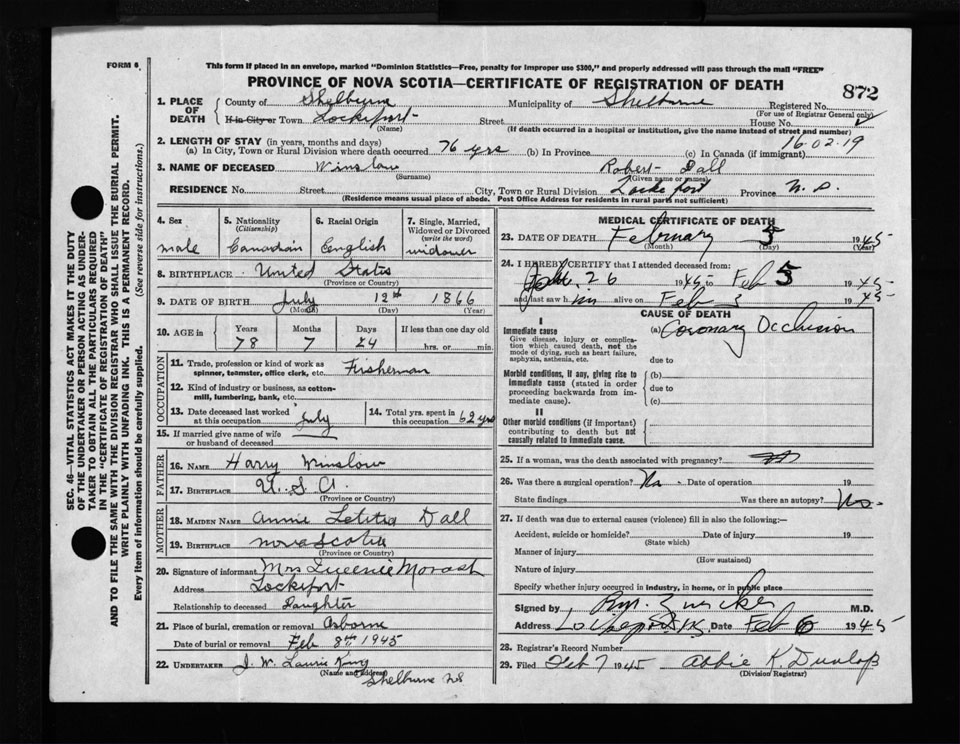 FORM 6.
This form if placed in an envelope, marked "Dominion Statistics—Free, penalty for improper use $300," and properly addressed will pass through the mail "FREE"
PROVINCE OF NOVA SCOTIA—CERTIFICATE OF REGISTRATION OF DEATH
872
1. PLACE OF DEATH County of Shelburne Municipality of Shelburne Registered No.
(For use of Registrar General only)
If in City or Town Lockeport Street House No.
(Name) (If death occurred in a hospital or institution, give the name instead of street and number)
16.02.19
2. LENGTH OF STAY (in years, months and days)
(a) In City, Town or Rural Division where death occurred 76 yrs (b) In Province (c) In Canada (if immigrant)
3. NAME OF DECEASED Winslow Robert Dall
(Surname) (Given name or names)
RESIDENCE No. Street City, Town or Rural Division Lockeport Province N.S.
(Residence means usual place of abode. Post Office Address for residents in rural parts not sufficient)
4. Sex 5. Nationality (Citizenship) 6. Racial Origin 7. Single, Married, Widowed or Divorced (write the word)
male Canadian English widower
8. BIRTHPLACE United States
(Province or Country)
9. DATE OF BIRTH July 12th 1866
(Month) (Day) (Year)
10. AGE in Years Months Days If less than one day old
78 7 24 hrs. or min.
OCCUPATION
11. Trade, profession or kind of work as spinner, teamster, office clerk, etc. Fisherman
12. Kind of industry or business, as cotton-mill, lumbering, bank, etc.
13. Date deceased last worked at this occupation July 14. Total yrs. spent in this occupation 62 yrs
15. If married give name of wife or husband of deceased
FATHER
16. NAME Harry Winslow
17. BIRTHPLACE U.S.A.
(Province or Country)
MOTHER
18. MAIDEN NAME Annie Letitia Dall
19. BIRTHPLACE Nova Scotia
(Province or Country)
20. Signature of informant Mrs Morash
Address Lockeport
Relationship to deceased Daughter
21. Place of burial, cremation or removal Osborne
Date of burial or removal Feb 8th 1945
22. UNDERTAKER J. W. Laurie King
(Name and address)
Shelburne NS
MEDICAL CERTIFICATE OF DEATH
23. DATE OF DEATH February 5 1945
(Month) (Day) (Year)
24. I HEREBY CERTIFY that I attended deceased from:
26 1945 to Feb 5 1945
and last saw him alive on Feb 1945
CAUSE OF DEATH
I
Immediate cause (a) Coronary Occlusion
Give disease, injury or complication which caused death, not the mode of dying, such as heart failure, asphyxia, asthenia, etc. due to
Morbid conditions, if any, giving rise to immediate cause (stated in order proceeding backwards from immediate cause). (b)
due to
(c)
II
Other morbid conditions (if important) contributing to death but not causally related to immediate cause.
25. If a woman, was the death associated with pregnancy?
26. Was there a surgical operation? No - Date of operation 19
State findings Was there an autopsy? No-
27. If death was due to external causes (violence) fill in also the following:—
Accident, suicide or homicide? Date of injury 19
(State which)
Manner of injury
(How sustained)
Nature of injury
Specify whether injury occurred in industry, in home, or in public place
Signed by Zwicker M.D.
Address Lockeport N.S. Date Feb 6 1945
28. Registrar's Record Number
29. Filed Feb 7 1945 Abbie K. Dunlop
(Division Registrar)
SEC. 46—VITAL STATISTICS ACT MAKES IT THE DUTY
OF THE UNDERTAKER OR PERSON ACTING AS UNDER-
TAKER TO OBTAIN ALL THE PARTICULARS REQUIRED
IN THE "CERTIFICATE OF REGISTRATION OF DEATH"
AND TO FILE THE SAME WITH THE DIVISION REGISTRAR WHO SHALL ISSUE THE BURIAL PERMIT.
WRITE PLAINLY WITH UNFADING INK. THIS IS A PERMANENT RECORD.
Every item of information should be carefully supplied. (See reverse side for instructions.)